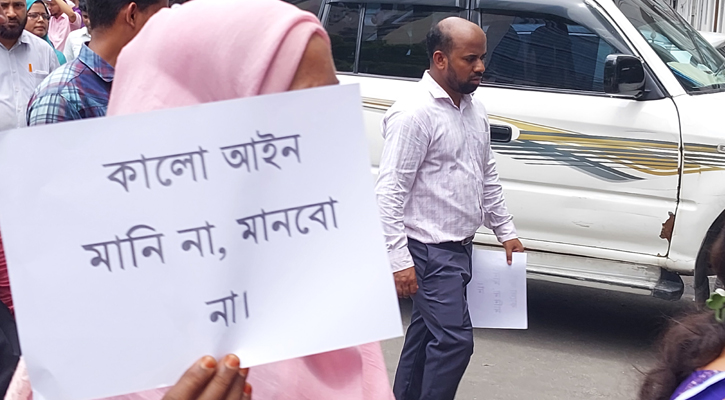 কালো আইন
মানি না, মানবো
না।